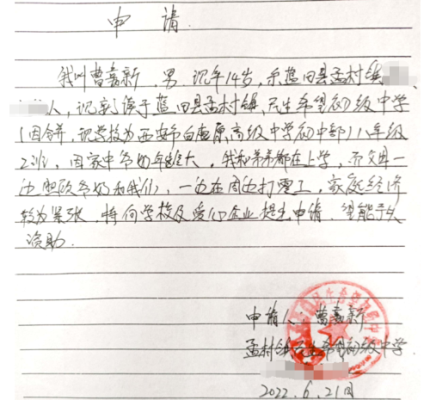 申请
我叫曹嘉新，男，现年14岁，系蓝田县孟村镇
人，现就读于蓝田县孟村镇民生希望初级中学
（因合并，现学校为西安市白鹿原高级中学初中部）八年级
2班，因家中爷奶年龄大，我和弟弟都在上学，而父母一
边照顾爷奶和我们，一边在周边打零工，家庭经济
较为紧张，特向学校及爱心企业提出申请，望能予以
资助。
申请人 曹嘉新
孟村镇民生希望初级中学
2022.6.21日